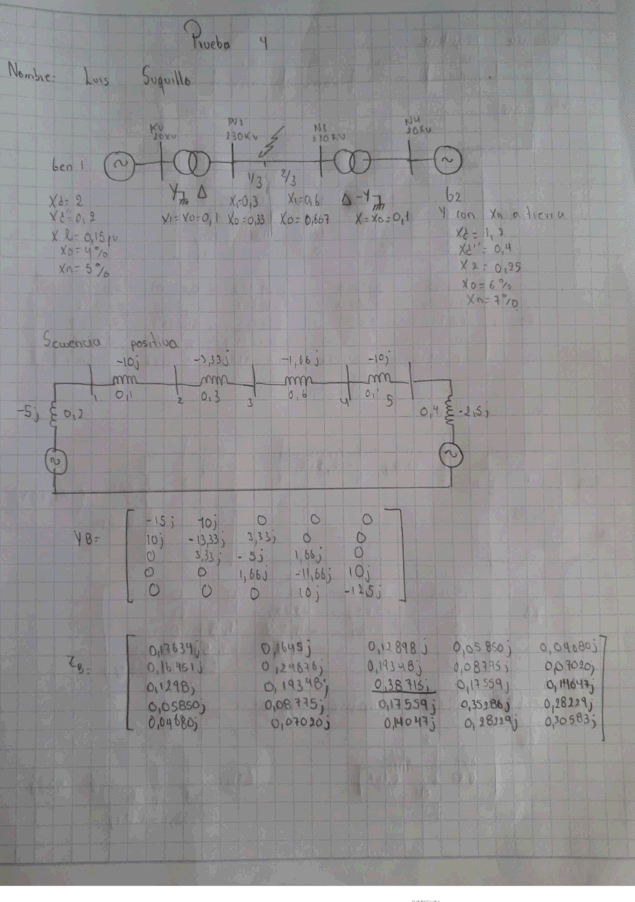 Prueba 4
Nombre: Luis Suquillo
KV 20KV
230KV
N3 230KV
N4 20KV
Gen 1
1/3 2/3
G2
Y Δ
X1=0,3 X1=0,6
Δ-Y
Y con Xn a tierra
X1=X0=0,1 X0=0,33 X0=0,667 X=X0=0,1
Xd=2
X2=0,15pu
X0=4%
Xn=5%
Xd=1,2
Xd''=0,4
X2=0,25
X0=6%
Xn=7%
Secuencia positiva
-10j -3,33j -1,66j -10j
1 0,1 2 0,3 3 0,6 4 5
-5j 0,2 0,4 -2,5j
YB=
-15j 10j 0 0 0
10j -13,33j 3,33j 0 0
0 3,33j -5j 1,66j 0
0 0 1,66j -11,66j 10j
0 0 0 10j -12,5j
ZB=
0,17634j 0,1645j 0,12898j 0,05850j 0,04680j
0,16451j 0,24676j 0,19348j 0,08775j 0,07020j
0,1298j 0,19348j 0,38715j 0,17559j 0,14047j
0,05850j 0,08775j 0,17559j 0,35286j 0,28229j
0,04680j 0,07020j 0,14047j 0,28229j 0,30583j